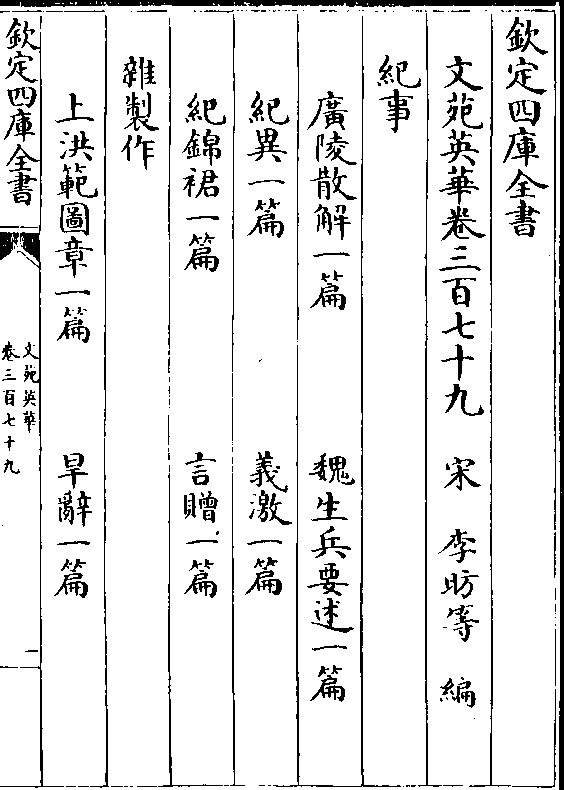 欽定四庫全書
文苑英華卷三百七十九 宋 李昉等 編
紀事
廣陵散解一篇 魏生兵要述一篇
紀異一篇 義激一篇
紀錦裙一篇 言贈一篇
雜製作
上洪範圖章一篇 旱辭一篇
欽定四庫全書
文苑英華
卷三百七十九
一